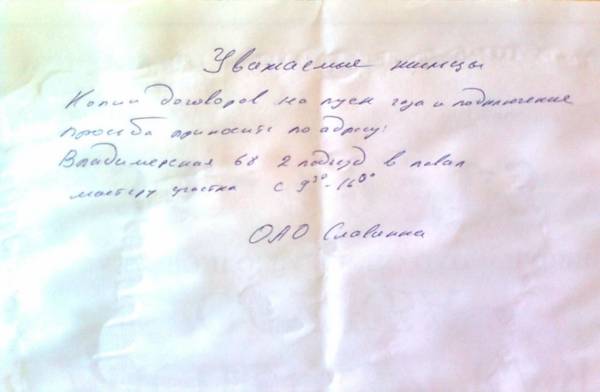 Уважаемые жильцы
Копии договоров на пуск газа и подключение
просьба приносить по адресу:
Владимирская 68 2 подъезд в подвал
мастеру участка с 9³⁰-16⁰⁰
ОАО Славянка